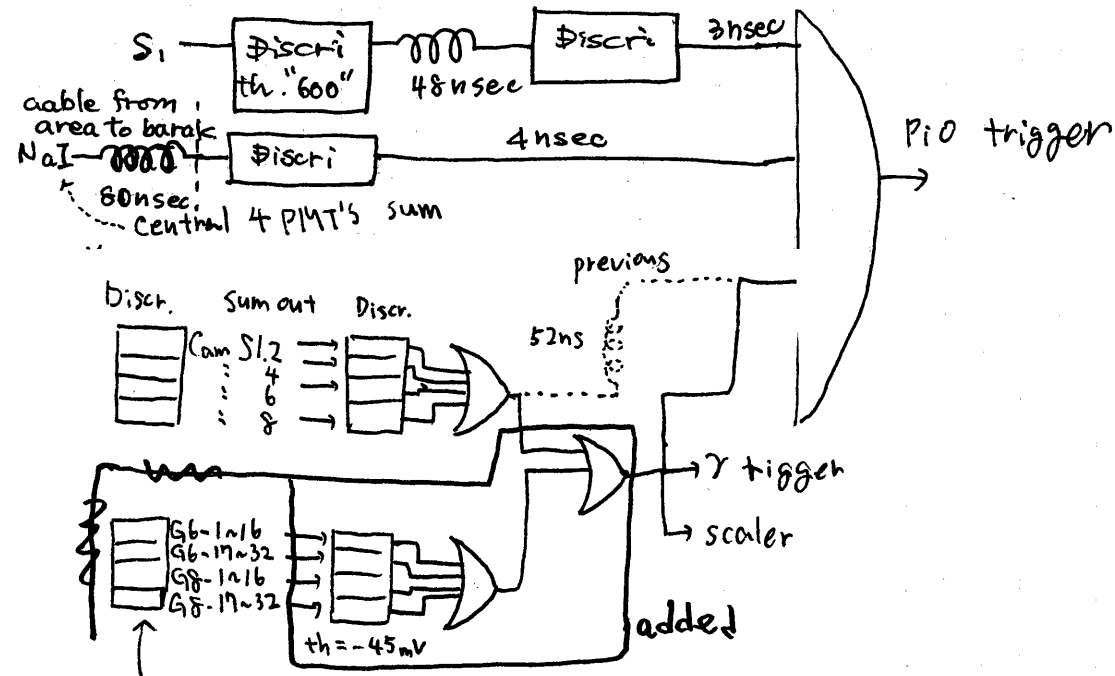 S1
Discri
th. "600"
48nsec
Discri
3nsec
cable from
area to barak
NaI
80nsec.
Discri
4nsec
Central 4 PMT's sum
PiO trigger
previous
52ns
Discr. Sum out Discr.
Cam S1.2
" 4
" 6
" 8
γ trigger
scaler
G6-1~16
G6-17~32
G8-1~16
G8-17~32
th=-45mV
added